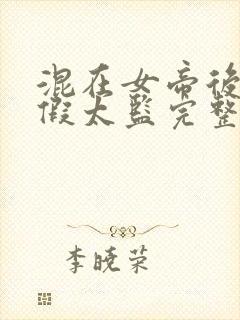 混在女帝後
假太監完整
李曉榮